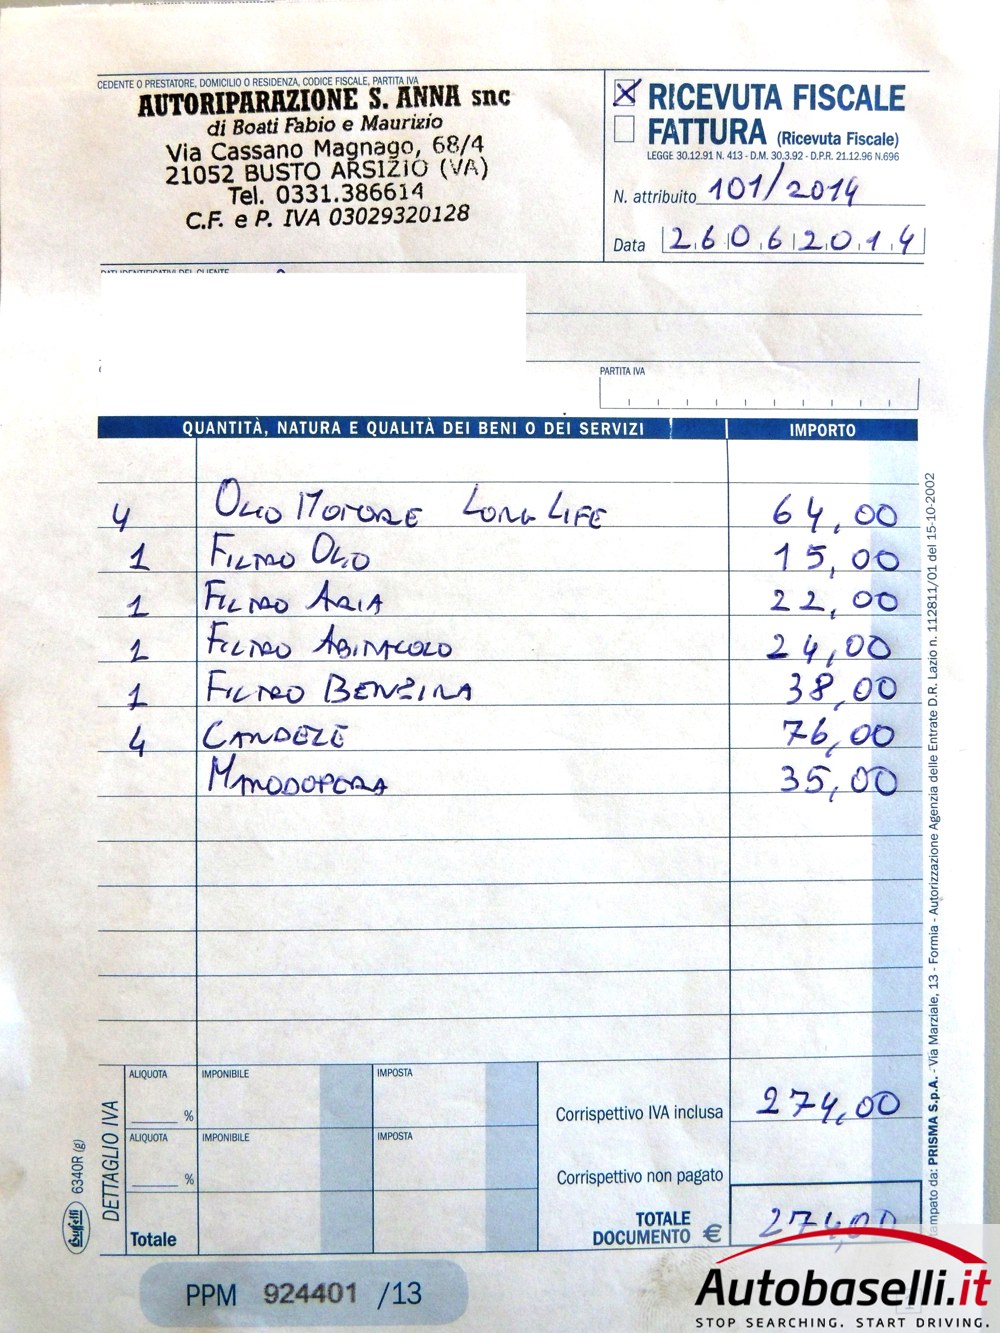 CEDENTE O PRESTATORE, DOMICILIO O RESIDENZA, CODICE FISCALE, PARTITA IVA
AUTORIPARAZIONE S. ANNA snc
di Boati Fabio e Maurizio
Via Cassano Magnago, 68/4
21052 BUSTO ARSIZIO (VA)
Tel. 0331.386614
C.F. e P. IVA 03029320128
RICEVUTA FISCALE
FATTURA (Ricevuta Fiscale)
LEGGE 30.12.91 N. 413 - D.M. 30.3.92 - D.P.R. 21.12.96 N.696
N. attribuito 101/2014
Data 26062014
DATI IDENTIFICATIVI DEL CLIENTE
PARTITA IVA
QUANTITÀ, NATURA E QUALITÀ DEI BENI O DEI SERVIZI IMPORTO
4 OLIO MOTORE LONG LIFE 64,00
1 FILTRO OLIO 15,00
1 FILTRO ARIA 22,00
1 FILTRO ABITACOLO 24,00
1 FILTRO BENZINA 38,00
4 CANDELE 76,00
MANODOPERA 35,00
DETTAGLIO IVA
ALIQUOTA IMPONIBILE IMPOSTA
%
Corrispettivo IVA inclusa 274,00
ALIQUOTA IMPONIBILE IMPOSTA
%
Corrispettivo non pagato
Totale
TOTALE
DOCUMENTO € 274,00
PPM 924401 /13
Buffetti 6340R (g)
tampato da: PRISMA S.p.A. - Via Marziale, 13 - Formia - Autorizzazione Agenzia delle Entrate D.R. Lazio n. 112811/01 del 15-10-2002
Autobaselli.it
STOP SEARCHING. START DRIVING.